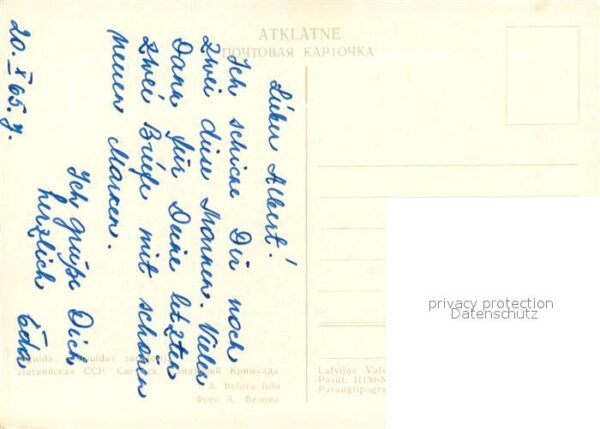 ATKLATNE
ПОЧТОВАЯ КАРТОЧКА
20. X 65. g.
Lieber Albert!
Ich schicke Dir noch
zwei diese Marken. Vielen
Dank für Deine letzten
zwei Briefe mit schönen
neuen Marken.
Ich grüße Dich
herzlich Eda
Латвийская ССР. Санаторий Кримулда
A. Belova foto
Фото А. Белова
Latvijas Vals
Pasūt. 11130-
Paraugtipogra
privacy protection
Datenschutz